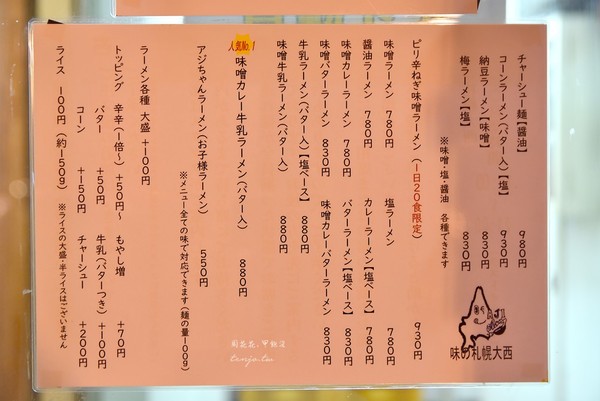 チャーシュー麺【醤油】 980円
コーンラーメン(バター入)【塩】 930円
納豆ラーメン【味噌】 830円
梅ラーメン【塩】 830円
※味噌・塩・醤油 各種できます
ピリ辛ねぎ味噌ラーメン(1日20食限定) 930円
味噌ラーメン 780円 塩ラーメン 780円
醤油ラーメン 780円 カレーラーメン【塩ベース】 780円
味噌カレーラーメン 780円 バターラーメン【塩ベース】 830円
味噌バターラーメン 830円 味噌カレーバターラーメン 830円
牛乳ラーメン(バター入)【塩ベース】 880円
味噌牛乳ラーメン(バター入) 880円
人気No.1
味噌カレー牛乳ラーメン(バター入) 880円
アジちゃんラーメン(お子様ラーメン) 550円
※メニュー全ての味で対応できます(麺の量100g)
ラーメン各種 大盛 +100円
トッピング 辛辛(1倍〜) +50円〜 もやし増 +70円
バター +50円 牛乳(バターつき) +100円
コーン +150円 チャーシュー +200円
ライス 100円 (約150g) ※ライスの大盛・半ライスはございません
味の札幌大西
周花花,甲飽沒
tenjo.tw